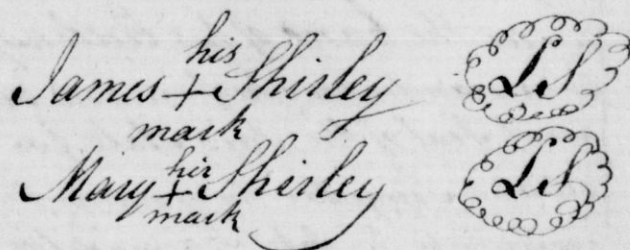 his
James + Shirley LS
mark
her
Mary + Shirley LS
mark